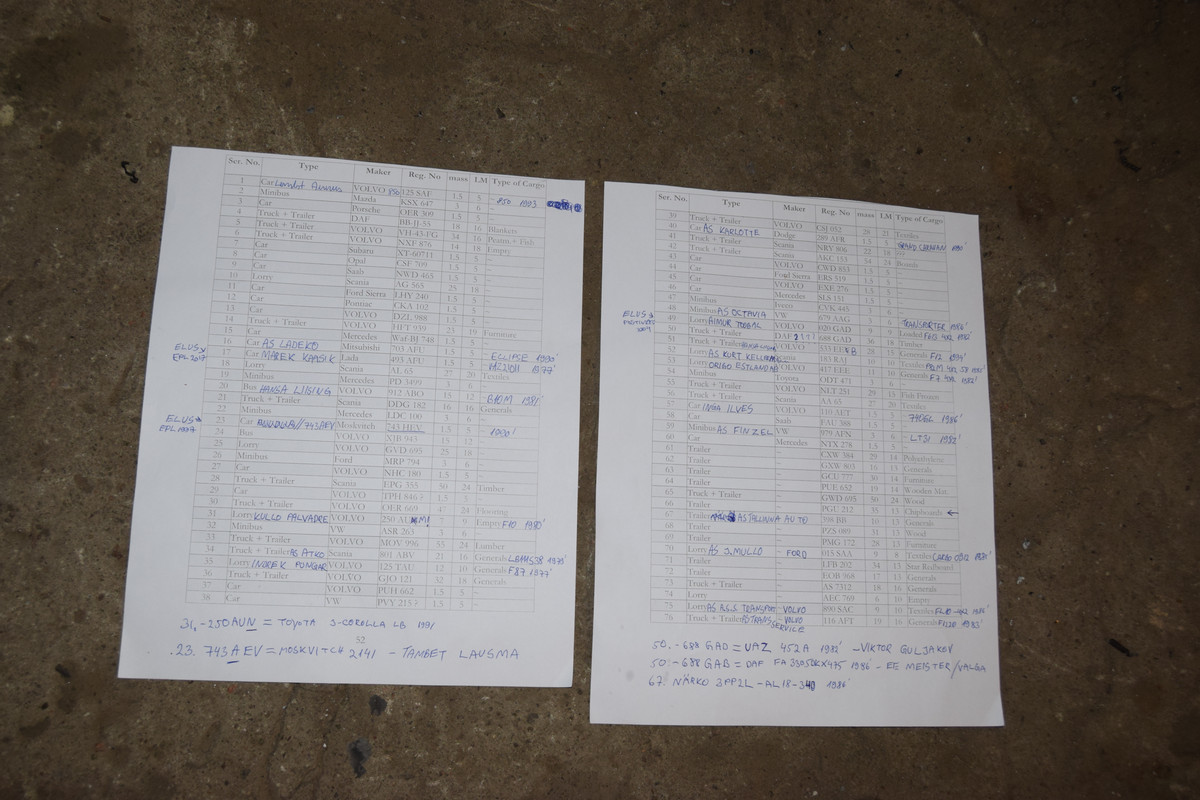 Ser. No. Type Maker Reg. No mass LM Type of Cargo
1 Car VOLVO 850 125 SAF 1.5 5 850 1993
2 Minibus Mazda KSX 647 3 6 -
3 Car Porsche OER 309 1.5 5 -
4 Truck + Trailer DAF BB-JJ-55 18 16 Blankets
5 Truck + Trailer VOLVO VH-43-FG 34 16
6 Truck + Trailer VOLVO NXF 876 14 18 Empty
7 Car Subaru XT-60711 1.5 5 -
8 Car Opel CSF 709 1.5 5 -
9 Car Saab NWD 465 1.5 5 -
10 Lorry Scania AG 565 25 18 -
11 Car Ford Sierra LHY 240 1.5 5 -
12 Car Pontiac CKA 102 1.5 5 -
13 Car VOLVO DZL 988 1.5 5 -
14 Truck + Trailer VOLVO HFT 939 23 19 Furniture
15 Car Mercedes Waf-BJ 748 1.5 5 -
16 Car AS LADEKO Mitsubishi 703 AFU 1.5 5 ECLIPSE 1990'
17 Car MAREK KAASIK Lada 493 AFU 1.5 5 1977'
18 Lorry Scania AL 65 15 20 Textiles
19 Minibus Mercedes PD 3499 3 6 -
20 Bus HANSA LIISING VOLVO 912 ABO 15 12 B10M 1981'
21 Truck + Trailer Scania DDG 182 16 16 Generals
22 Minibus Mercedes LDC 100 3 6 -
23 Car 743AEV Moskvitch 243 HEV 1.5 5 1990'
24 Bus VOLVO XJB 943 15 12 -
25 Lorry VOLVO GVD 695 25 18 -
26 Minibus Ford MRP 794 3 6 -
27 Car VOLVO NHC 180 1.5 5 -
28 Truck + Trailer Scania EPG 355 50 24 Timber
29 Car VOLVO TPH 846 ? 1.5 5 -
30 Truck + Trailer VOLVO OER 669 47 24 Flooring
31 Lorry KULLO PALVADRE VOLVO 250 7 9 Empty F10 1980'
32 Minibus VW ASR 263 3 6 -
33 Truck + Trailer VOLVO MOV 996 55 24 Lumber
34 Truck + Trailer AS ATKO Scania 801 ABV 21 16 Generals
35 Lorry INDREK PUNGAR VOLVO 125 TAU 12 16 Generals F87 1977'
36 Truck + Trailer VOLVO GJO 121 32 18 Generals
37 Car VOLVO PUH 662 1.5 5 -
38 Car VW PVY 215 ? 1.5 5 -
ELUS
EPL 2017
ELUS
EPL 1997
52
31.-250AUN = TOYOTA S-COROLLA LB 1991
.23. 743AEV = MOSKVITCH 2141 - TAMBET LAUSMA
Ser. No. Type Maker Reg. No mass LM Type of Cargo
39 Truck + Trailer VOLVO CSJ 052 28 21 Textiles
40 Car AS KARLOTTE Dodge 289 AFR 1.5 5 1990'
41 Truck + Trailer Scania NRY 806 22 18
42 Truck + Trailer Scania AKC 155 54 24 Boards
43 Car VOLVO CWD 853 1.5 5 -
44 Car Ford Sierra ERS 519 1.5 5 -
45 Car VOLVO EXE 276 1.5 5 -
46 Car Mercedes SLS 151 1.5 5 -
47 Minibus Iveco CVK 445 3 6 -
48 Minibus AS OCTAVIA VW 679 AAG 3 6 TRANSPORTER 1986'
49 Lorry AIMUR TOOBAL VOLVO 020 GAD 9 9
50 Truck + Trailer DAF 688 GAD 36 18 Timber
51 Truck + Trailer VOLVO 28 15 Generals F12 1984'
52 Lorry AS KURT KELLERMANN Scania 183 RAJ
53 Lorry ORIGO ESTLAND VOLVO 417 EEE 11 10 Generals
54 Minibus Toyota ODT 471 3 6 -
55 Truck + Trailer VOLVO NLT 251 28 15 Fish Frozen
56 Truck + Trailer Scania AA 65 27 20 Textiles
57 Car INGA ILVES VOLVO 110 AET 1.5 5 1986'
58 Car Saab FAU 388 1.5 5 -
59 Minibus AS FINZEL VW 879 AFN 3 6 1982'
60 Car Mercedes NTX 278 1.5 5 -
61 Trailer - CXW 584 29 14 Polyethylens
62 Trailer - GXW 803 16 13 Generals
63 Trailer - GCU 777 30 14 Furniture
64 Trailer - PUE 652 19 14 Wooden Mat.
65 Truck + Trailer - GWD 695 50 24 Wood
66 Trailer - PGU 212 35 15 Chipboards ←
67 Trailer AS TALLINNA AUTO - 398 BB 10 13 Generals
68 Trailer - PZS 089 31 13 Wood
69 Trailer - PMG 172 28 13 Furniture
70 Lorry AS J. MULLO - FORD 015 SAA 9 8 Textiles
71 Trailer - LFB 202 34 15 Star Redboard
72 Trailer - EOB 968 17 13 Generals
73 Truck + Trailer - AS 7312 18 16 Generals
74 Lorry - AEC 769 6 10 Empty
75 Lorry AS A.S.S. TRANSPORT VOLVO 890 SAC 9 10 Textiles
76 Truck + Trailer - VOLVO 116 AFT 19 16 Generals 1983'
SERVICE
ELUS
50.-688 GAD = UAZ 452A 1982' -VIKTOR GULJAKOV
50-688 GAB = DAF FA 3305DKX475 1986' - EE MEISTER/VALGA
67. NÄRKO 3PP2L -AL18-340 1986'